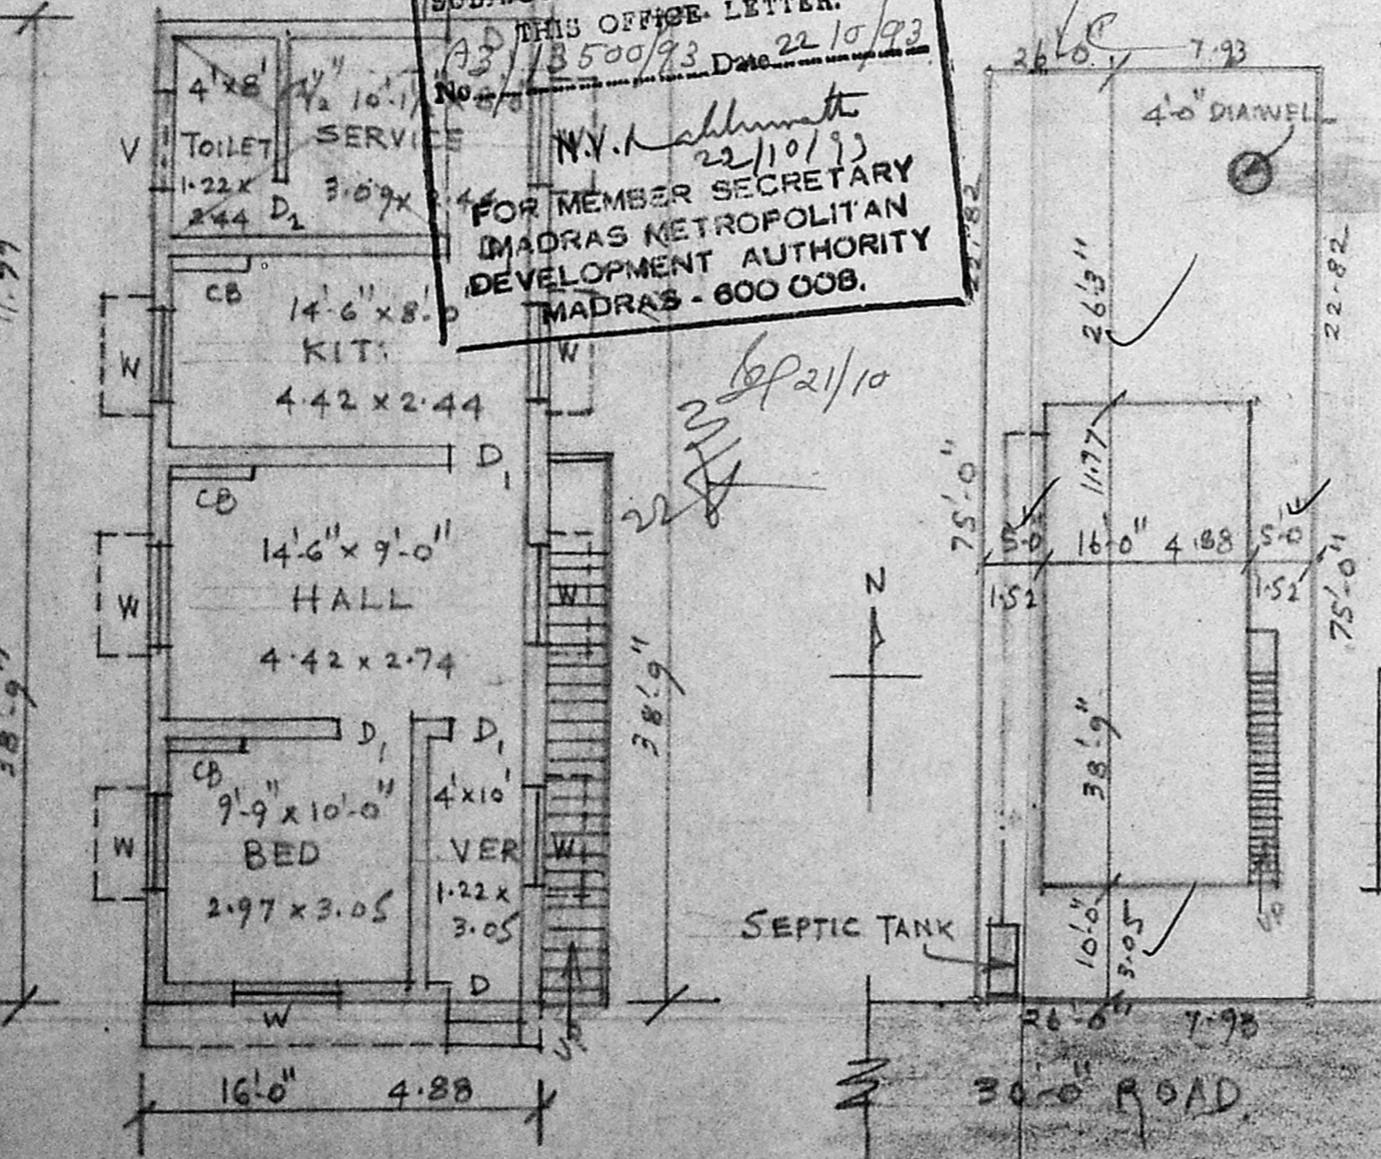 THIS OFFICE LETTER.
No. A3/13500/93 Date 22/10/93
22/10/93
FOR MEMBER SECRETARY
MADRAS METROPOLITAN
DEVELOPMENT AUTHORITY
MADRAS - 600 008.
21/10
22
4'x8'
TOILET
1.22 x
2.44
D2
V
SERVICE
3.09 x 2.44
CB
14'-6" x 8'-0
KIT:
4.42 x 2.44
W
W
D1
CB
14'-6" x 9'-0"
HALL
4.42 x 2.74
W
W
D1
D1
CB
9'-9" x 10'-0"
BED
2.97 x 3.05
W
4'x10'
VER
1.22 x
3.05
W
D
W
UP
16'-0" 4.88
11.77
38'-9"
38'-9"
N
26'-0" 7.93
4'-0" DIA WELL
22.82
22.82
26'-3"
11.77
75'-0"
75'-0"
5'-0" 16'-0" 4.88 5'-0"
1.52 1.52
38'-9"
UP
10'-0"
3.05
SEPTIC TANK
26'-0" 7.93
30'-0" ROAD